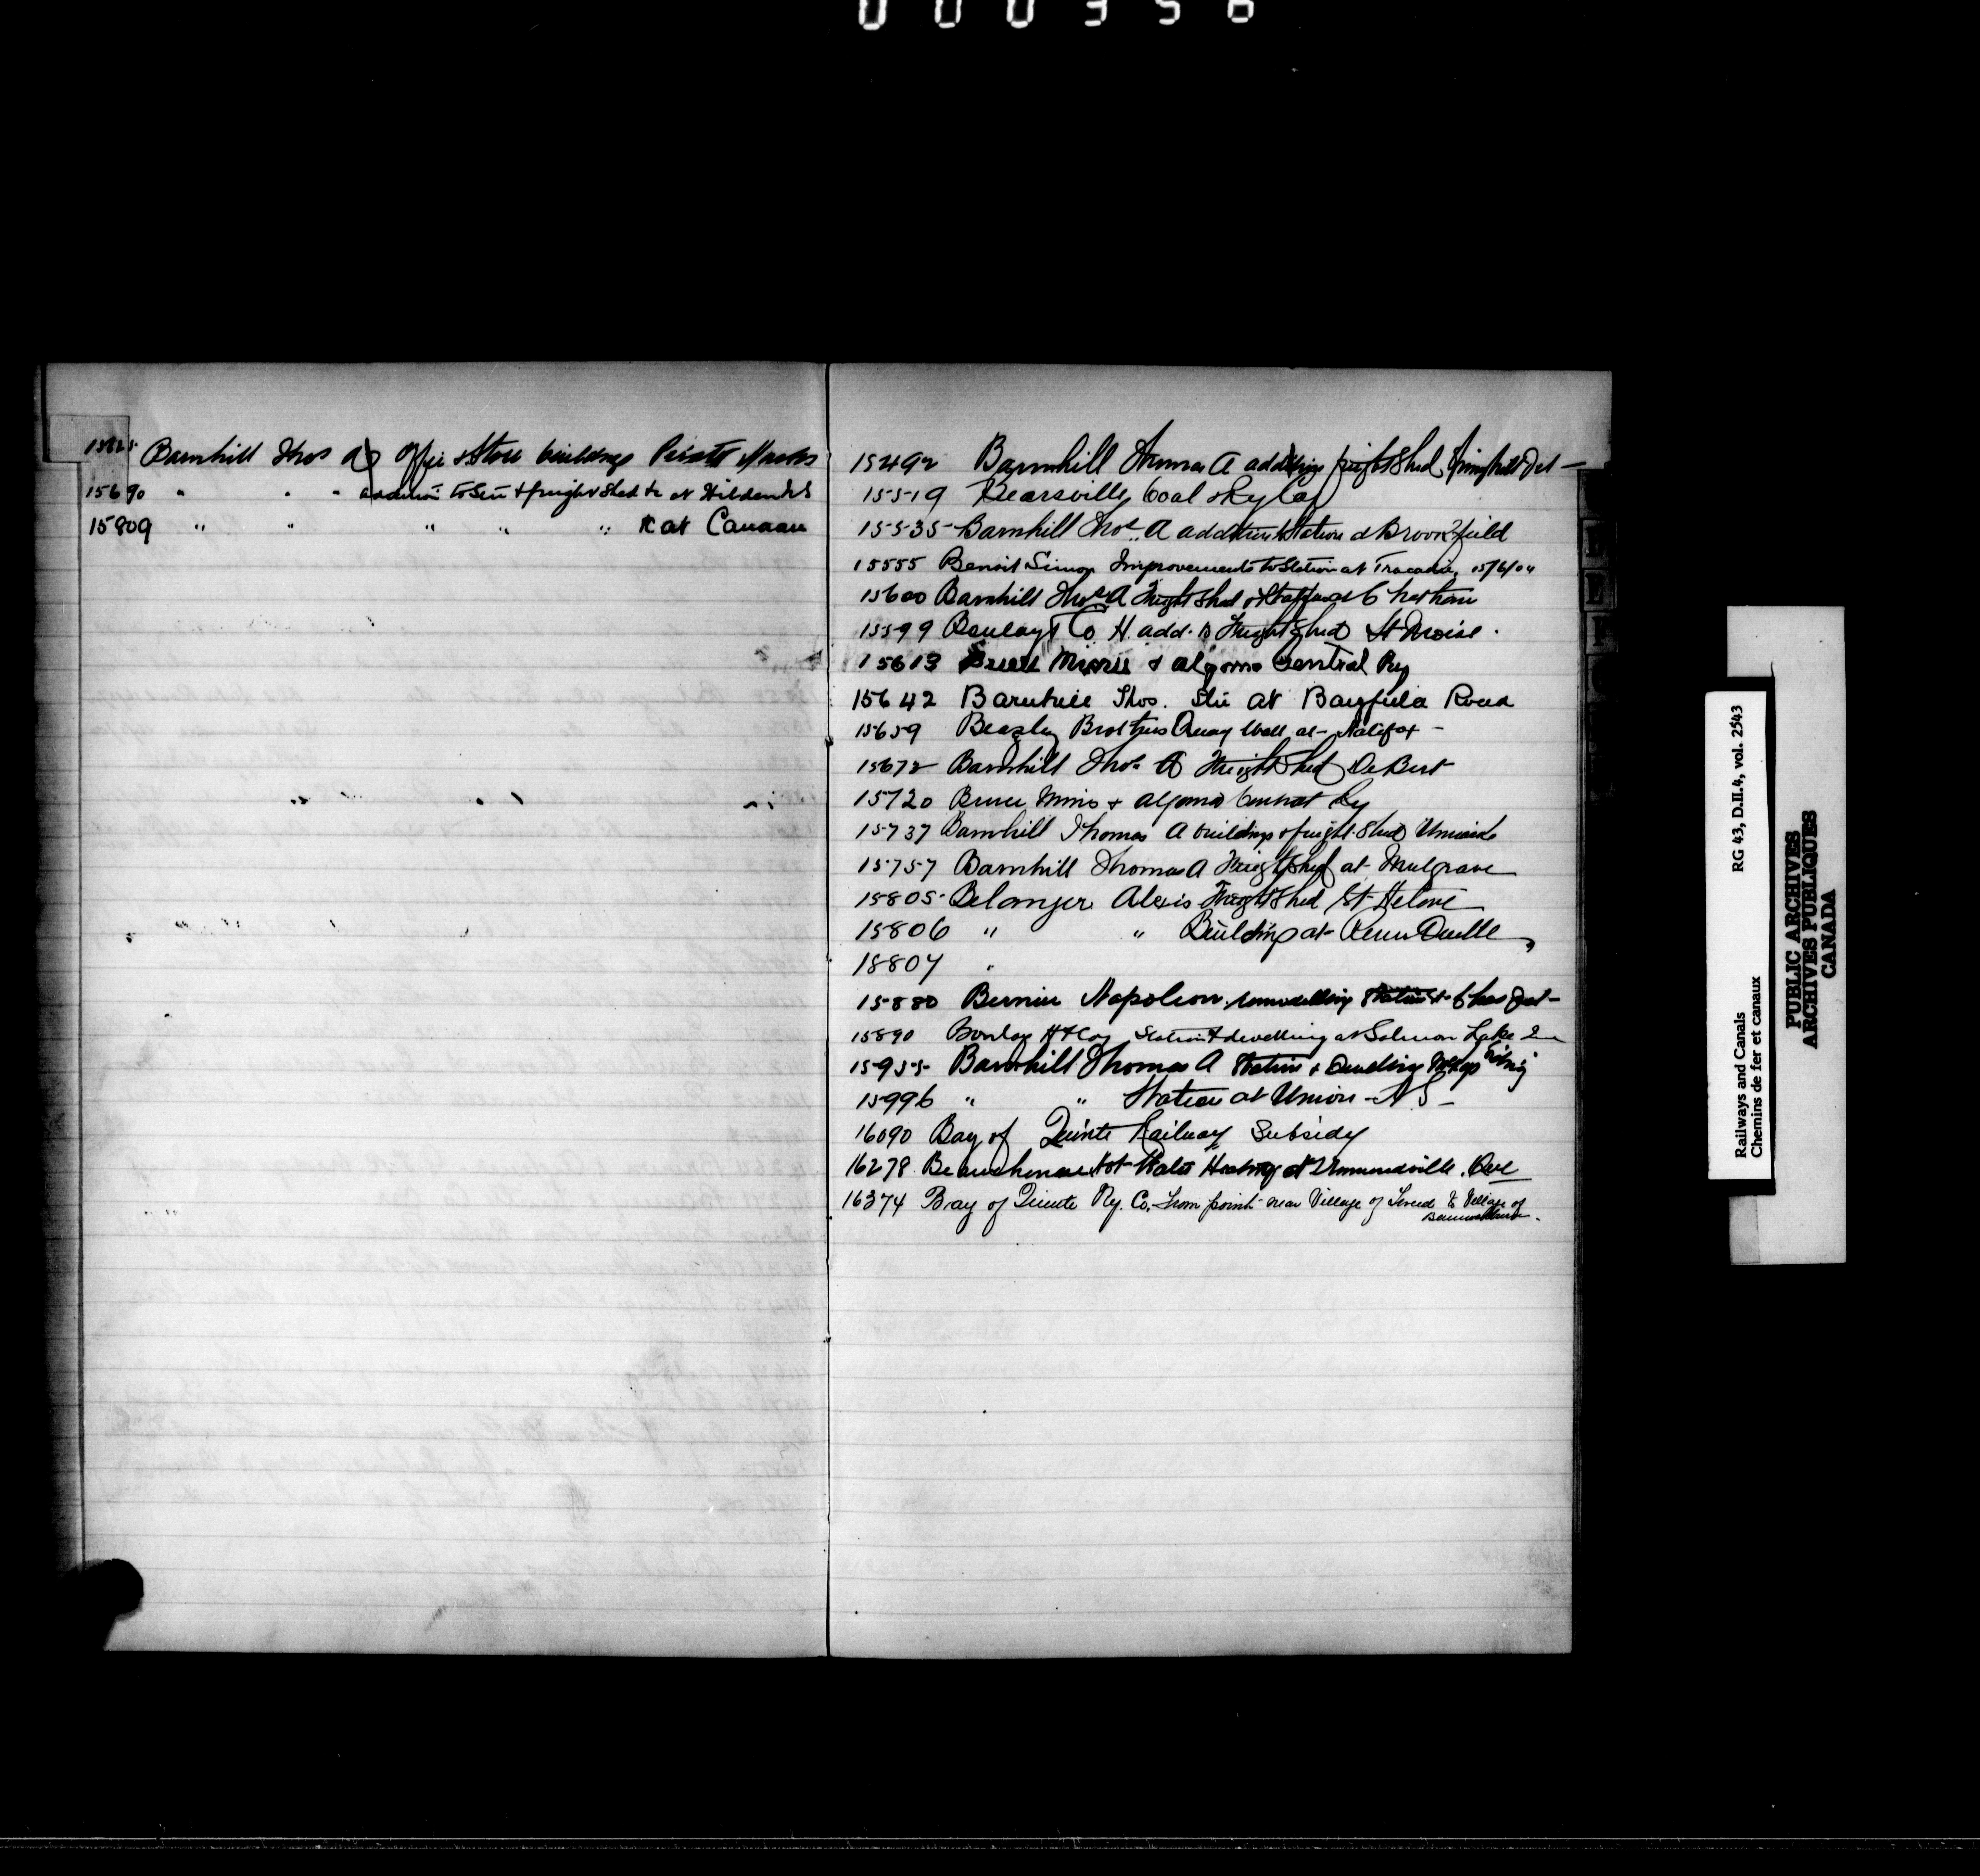 000356
15625 Barnhill Thos A Office & Store buildings
15690 " " " addition to & freight shed &c at Hilden N.S
15809 " " " " " &c at Canaan
15492 Barnhill Thomas A addition freight shed Springhill Jct
15519 Beersville Coal & Ry Co
15535 Barnhill Thos. A addition to Station at Brookfield
15555 Benoit Simon Improvements to Station at Tracadie, 15/6/04
15600 Barnhill Thos A freight shed & at Chatham
15599 Boulay & Co H. add. to Freight Shed St Moise.
15613 Bruce Mines & Algoma Central Ry
15642 Barnhill Thos. Stn at Bayfield Road
15659 Beazley Brothers Quay Wall at Halifax
15672 Barnhill Thos A Freight Shed DeBert
15720 Bruce Mines & Algoma Central Ry
15737 Barnhill Thomas A buildings & freight shed
15757 Barnhill Thomas A Freight Shed at Mulgrave
15805 Belanger Alexis Freight Shed St Helene
15806 " " Building at River Ouelle
15807 "
15880 Bernier Napoleon remodelling Station at Chas Jct
15890 Boulay H & Coy Station & dwelling at Salmon Lake
15955 Barnhill Thomas A Station & Dwelling
15996 " " Station at Union N S
16090 Bay of Quinte Railway Subsidy
16278 Beauchemin Hot Water Heating at Drummondville. Que
16374 Bay of Quinte Ry. Co. from point near Village of Tweed to Village of
Bannockburn.
Railways and Canals RG 43, D.II.4, vol. 2543
Chemins de fer et canaux
PUBLIC ARCHIVES
ARCHIVES PUBLIQUES
CANADA